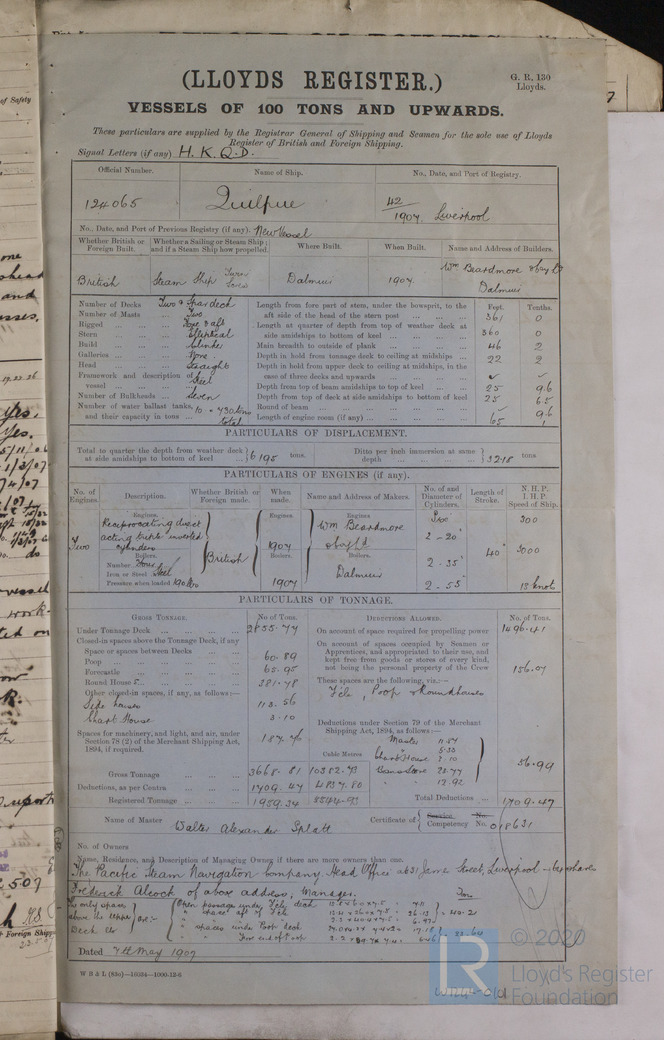 (LLOYDS REGISTER.)
G. R. 130
Lloyds.
VESSELS OF 100 TONS AND UPWARDS.
These particulars are supplied by the Registrar General of Shipping and Seamen for the sole use of Lloyds
Register of British and Foreign Shipping.
Signal Letters (if any) H. K. Q. D.
Official Number. Name of Ship. No., Date, and Port of Registry.
124065 Quilpue 42/1907 Liverpool
No., Date, and Port of Previous Registry (if any). New Vessel
Whether British or Foreign Built. Whether a Sailing or Steam Ship; and if a Steam Ship how propelled. Where Built. When Built. Name and Address of Builders.
British Steam Ship Twin Screw Dalmuir 1907. Wm Beardmore & Coy Ld Dalmuir
Number of Decks Two & Spar deck
Number of Masts Two
Rigged Fore & aft
Stern Elliptical
Build Clincher
Galleries None
Head Straight
Framework and description of vessel Steel
Number of Bulkheads Seven
Number of water ballast tanks, and their capacity in tons 10 = 730 tons total
Feet. Tenths.
Length from fore part of stem, under the bowsprit, to the aft side of the head of the stern post 361 0
Length at quarter of depth from top of weather deck at side amidships to bottom of keel 360 0
Main breadth to outside of plank 46 2
Depth in hold from tonnage deck to ceiling at midships 22 2
Depth in hold from upper deck to ceiling at midships, in the case of three decks and upwards
Depth from top of beam amidships to top of keel 25 96
Depth from top of deck at side amidships to bottom of keel 25 65
Round of beam 96
Length of engine room (if any) 65 1
PARTICULARS OF DISPLACEMENT.
Total to quarter the depth from weather deck at side amidships to bottom of keel 6195 tons.
Ditto per inch immersion at same depth 32.18 tons
PARTICULARS OF ENGINES (if any).
No. of Engines. Description. Whether British or Foreign made. When made. Name and Address of Makers. No. of and Diameter of Cylinders. Length of Stroke. N.H.P. I.H.P. Speed of Ship.
Two
Engines.
Reciprocating direct
acting triple inverted
cylinders
Boilers.
Number Four
Iron or Steel Steel
Pressure when loaded 190 lbs
British
Engines
1907
Boilers.
1907
Engines
Wm Beardmore
& Coy Ld
Boilers.
Dalmuir
Two
2 - 20"
2 - 35"
2 - 55"
40"
300
3000
13 knots
PARTICULARS OF TONNAGE.
GROSS TONNAGE. No. of Tons.
Under Tonnage Deck 2855.77
Closed-in spaces above the Tonnage Deck, if any
Space or spaces between Decks
Poop 60.89
Forecastle 65.95
Round House 381.78
Other closed-in spaces, if any, as follows:—
Side houses 113.56
Chart House 3.10
Spaces for machinery, and light, and air, under Section 78 (2) of the Merchant Shipping Act, 1894, if required. 187.76
Gross Tonnage 3668.81 10382.73
Deductions, as per Contra 1709.47 4837.80
Registered Tonnage 1959.34 5544.93
Cubic Metres
DEDUCTIONS ALLOWED. No. of Tons.
On account of space required for propelling power 1496.41
On account of spaces occupied by Seamen or Apprentices, and appropriated to their use, and kept free from goods or stores of every kind, not being the personal property of the Crew 156.07
These spaces are the following, viz.:—
F'cle, Poop & Roundhouse
Deductions under Section 79 of the Merchant Shipping Act, 1894, as follows:—
Master
Chart House 3.10
56.99
Total Deductions 1709.47
Name of Master Walter Alexander Splatt
Certificate of Service No. Competency No. 018631
No. of Owners
Name, Residence, and Description of Managing Owner if there are more owners than one.
The Pacific Steam Navigation Company Head Office at 31 James Street, Liverpool
Frederick Alcock of above address, Manager.
Dated 7th May 1907
W B & L (83o)—16034—1000-12-6
© 2020
Lloyd's Register
Foundation
LR